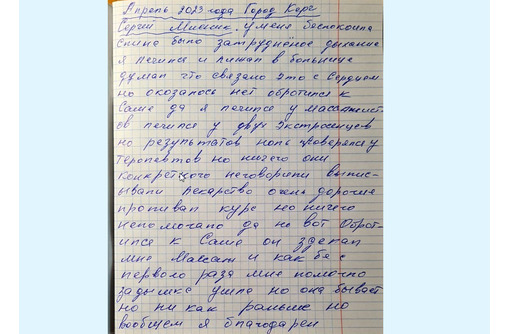 Апрель 2023 года Город Керч
Сергей Мионик. у меня беспокоила
спина было затрудненое дыхание
я лечился и лижал в больнице
думал что связано это с Сердцем
но оказалось нет обротился к
Саше да я лечился у масажист
ов лечился у двух Экстросинцев
но результатов ноль проверялся у
терапевтов но ничего они
конкретного неговорили выпис-
ывали лекарство очень дорогие
пропивал курс но ничего
непомогало да не вот Оброт-
ился к Саше он зделал
мне Массаж и как бе с
первого раза мне помогло
задышка ушла но она бывает
но ни как раньше но
вообщем я благодарен